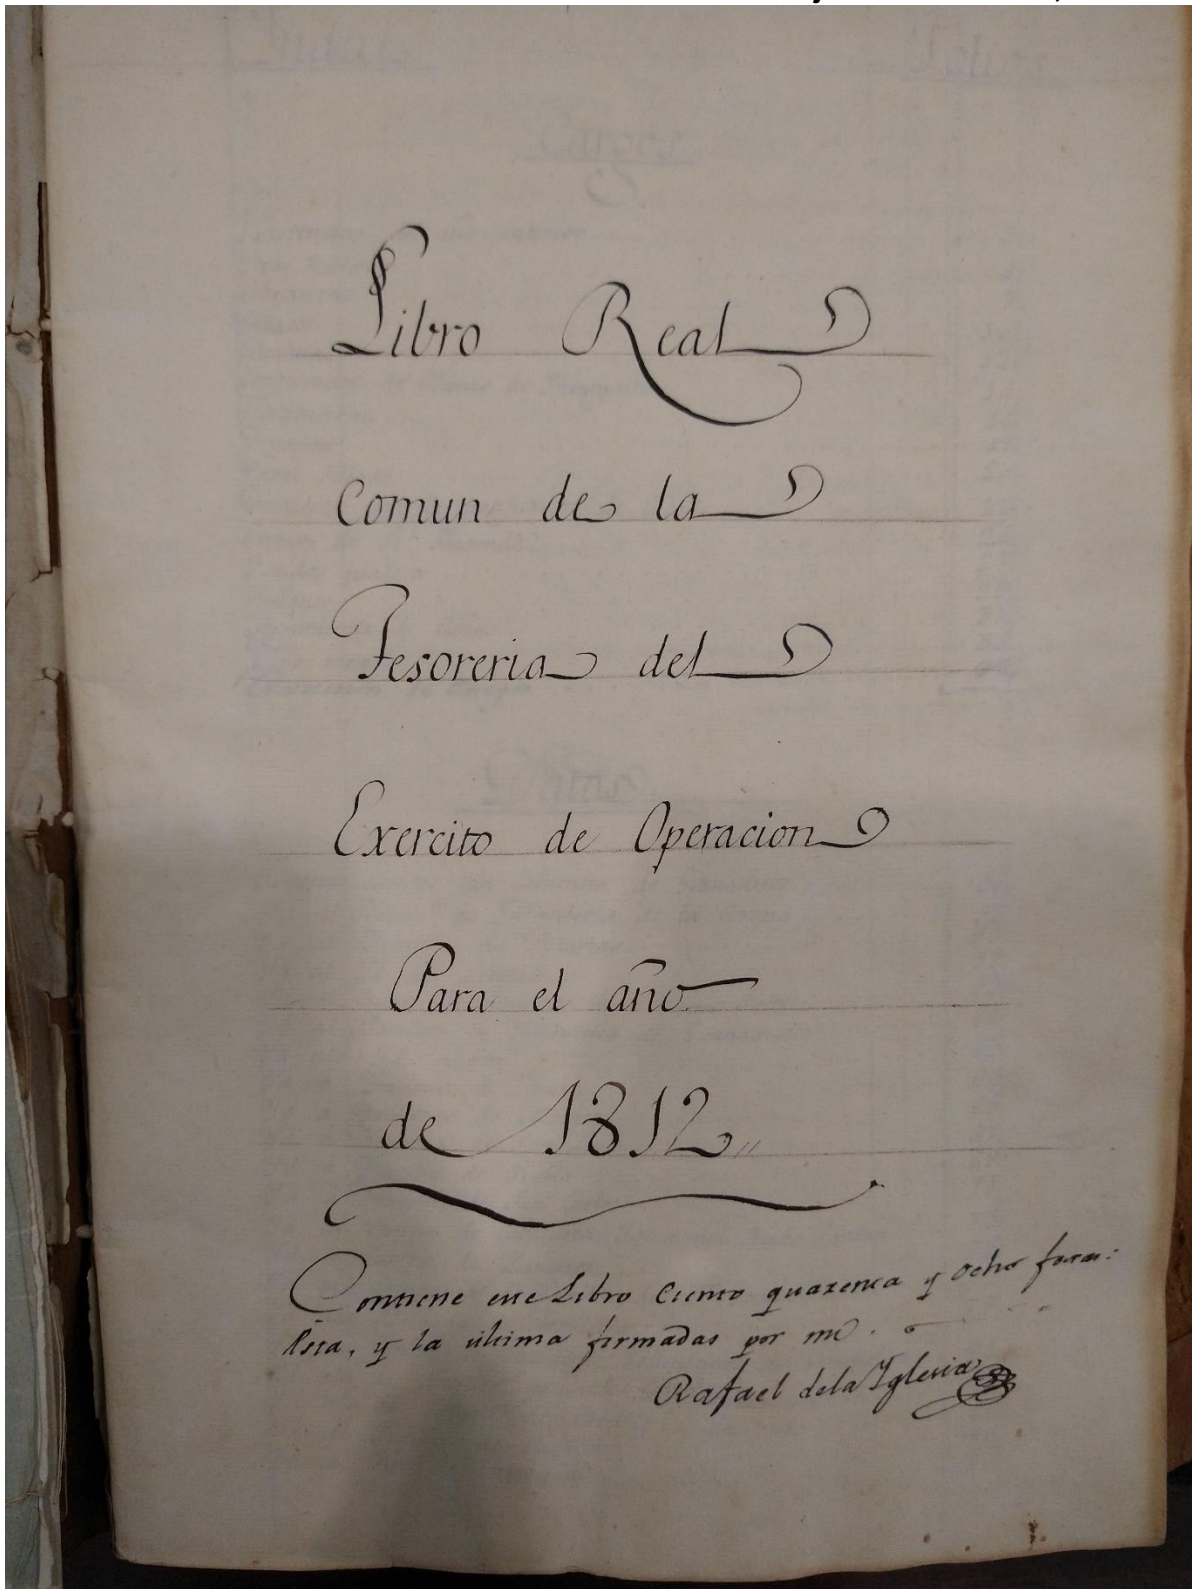 Libro Real
Comun de la
Tesoreria del
Exercito de Operacion
Para el año
de 1812,,
Contiene este Libro Ciento quarenta y ocho foxas:
Esta, y la ultima firmadas por mi.
Rafael dela Yglesia